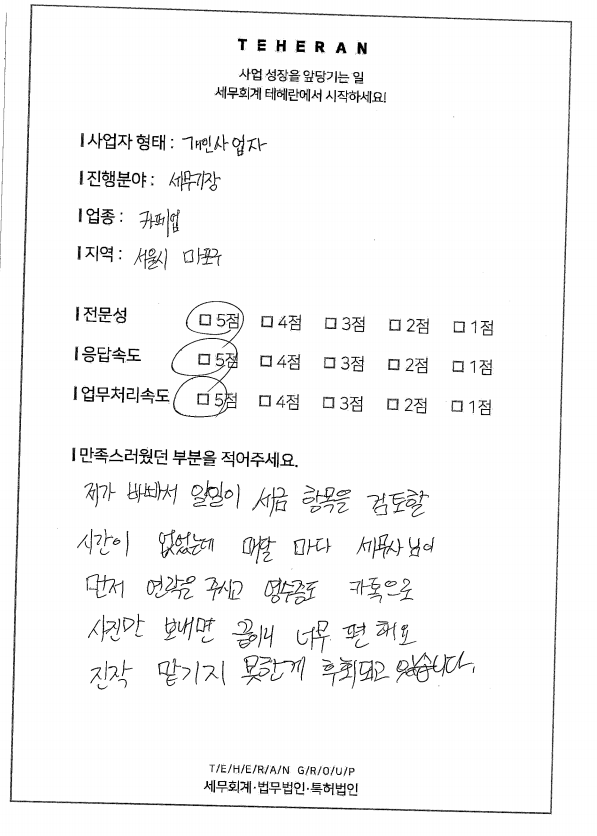 TEHERAN
사업 성장을 앞당기는 일
세무회계 테헤란에서 시작하세요!
사업자 형태 : 개인사업자
진행분야 : 세무기장
업종 : 카페업
지역 : 서울시 마포구
전문성 □ 5점 □ 4점 □ 3점 □ 2점 □ 1점
응답속도 □ 5점 □ 4점 □ 3점 □ 2점 □ 1점
업무처리속도 □ 5점 □ 4점 □ 3점 □ 2점 □ 1점
만족스러웠던 부분을 적어주세요.
제가 바빠서 일일이 세금 항목을 검토할
시간이 없었는데 매달 마다 세무사님이
먼저 연락을 주시고 영수증도 카톡으로
사진만 보내면 끝이니 너무 편해요
진작 맡기지 못한게 후회되고 있습니다.
T/E/H/E/R/A/N G/R/O/U/P
세무회계·법무법인·특허법인